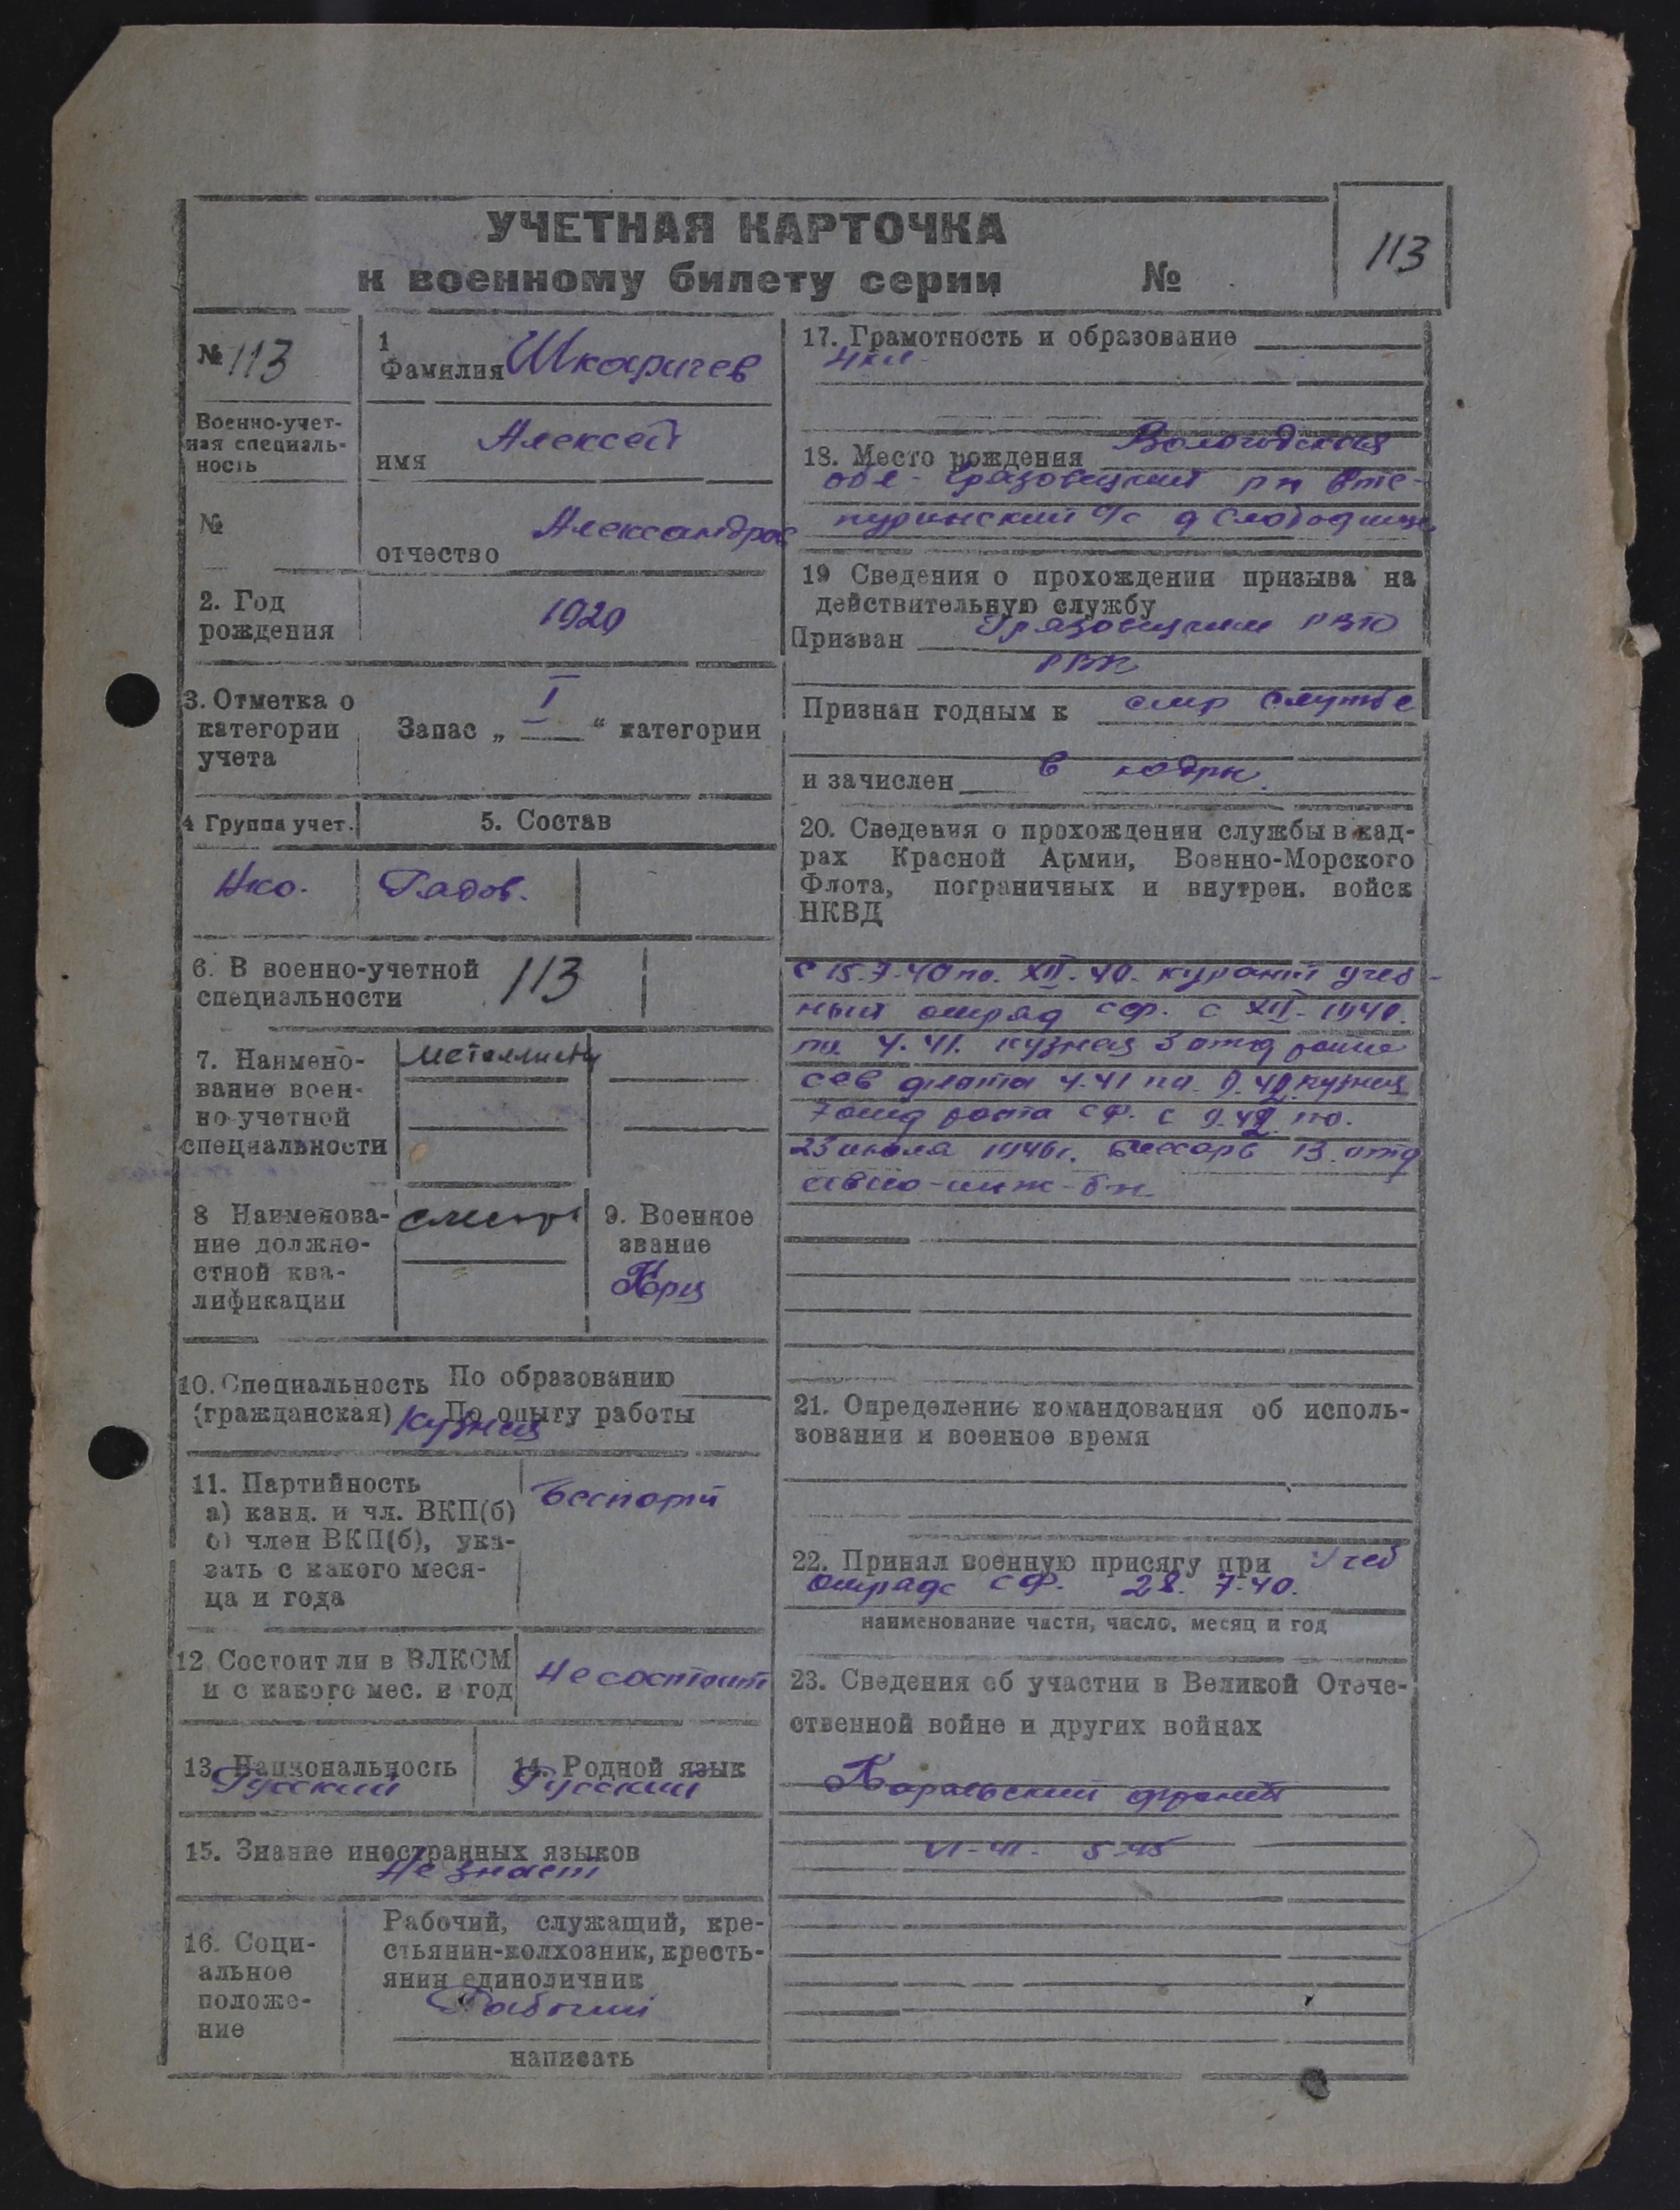 УЧЕТНАЯ КАРТОЧКА
к военному билету серии №
113
№ 113
Военно-учет-
ная специаль-
ность
№
1
Фамилия Шкаричев
имя Алексей
отчество Александров
2. Год
рождения
1920
3. Отметка о
категории
учета
Запас „ I “ категории
4 Группа учет.
5. Состав
Нко.
Рядов.
6. В военно-учетной
специальности
113
7. Наимено-
вание воен-
но-учетной
специальности
металлисты
8 Наименова-
ние должно-
стной ква-
лификации
9. Военное
звание
Крц
10. Специальность По образованию
(гражданская) По опыту работы
Кузнец
11. Партийность
а) канд. и чл. ВКП(б)
б) член ВКП(б), ука-
зать с какого меся-
ца и года
Беспарт
12 Состоит ли в ВЛКСМ
и с какого мес. и год
Не состоит
13. Национальность
Русский
14. Родной язык
Русский
15. Знание иностранных языков
Не знает
16. Соци-
альное
положе-
ние
Рабочий, служащий, кре-
стьянин-колхозник, кресть-
янин единоличник
Рабочий
написать
17. Грамотность и образование
4 кл.
18. Место рождения Вологодская
обл. Грязовецкий рн
с/с д Слободища
19 Сведения о прохождении призыва на
действительную службу
Призван Грязовецким
РВК
Признан годным к стр службе
и зачислен в кадры.
20. Сведения о прохождении службы в кад-
рах Красной Армии, Военно-Морского
Флота, пограничных и внутрен. войск
НКВД
с 15.7.40 по XII.40. учеб-
ный отряд СФ. с XII-1940.
по 4.41. кузнец 3 отд роты
Сев флота 4.41 по 9.42 кузнец
7 отд рота СФ. с 9.42 по.
23 июля 1946 г. слесарь 13 отд
авио-инж-бн
21. Определение командования об исполь-
зовании и военное время
22. Принял военную присягу при Учеб
отряде СФ. 28. 7.40.
наименование части, число, месяц и год
23. Сведения об участии в Великой Отече-
ственной войне и других войнах
Карельский фронт
VI-41. 5.45